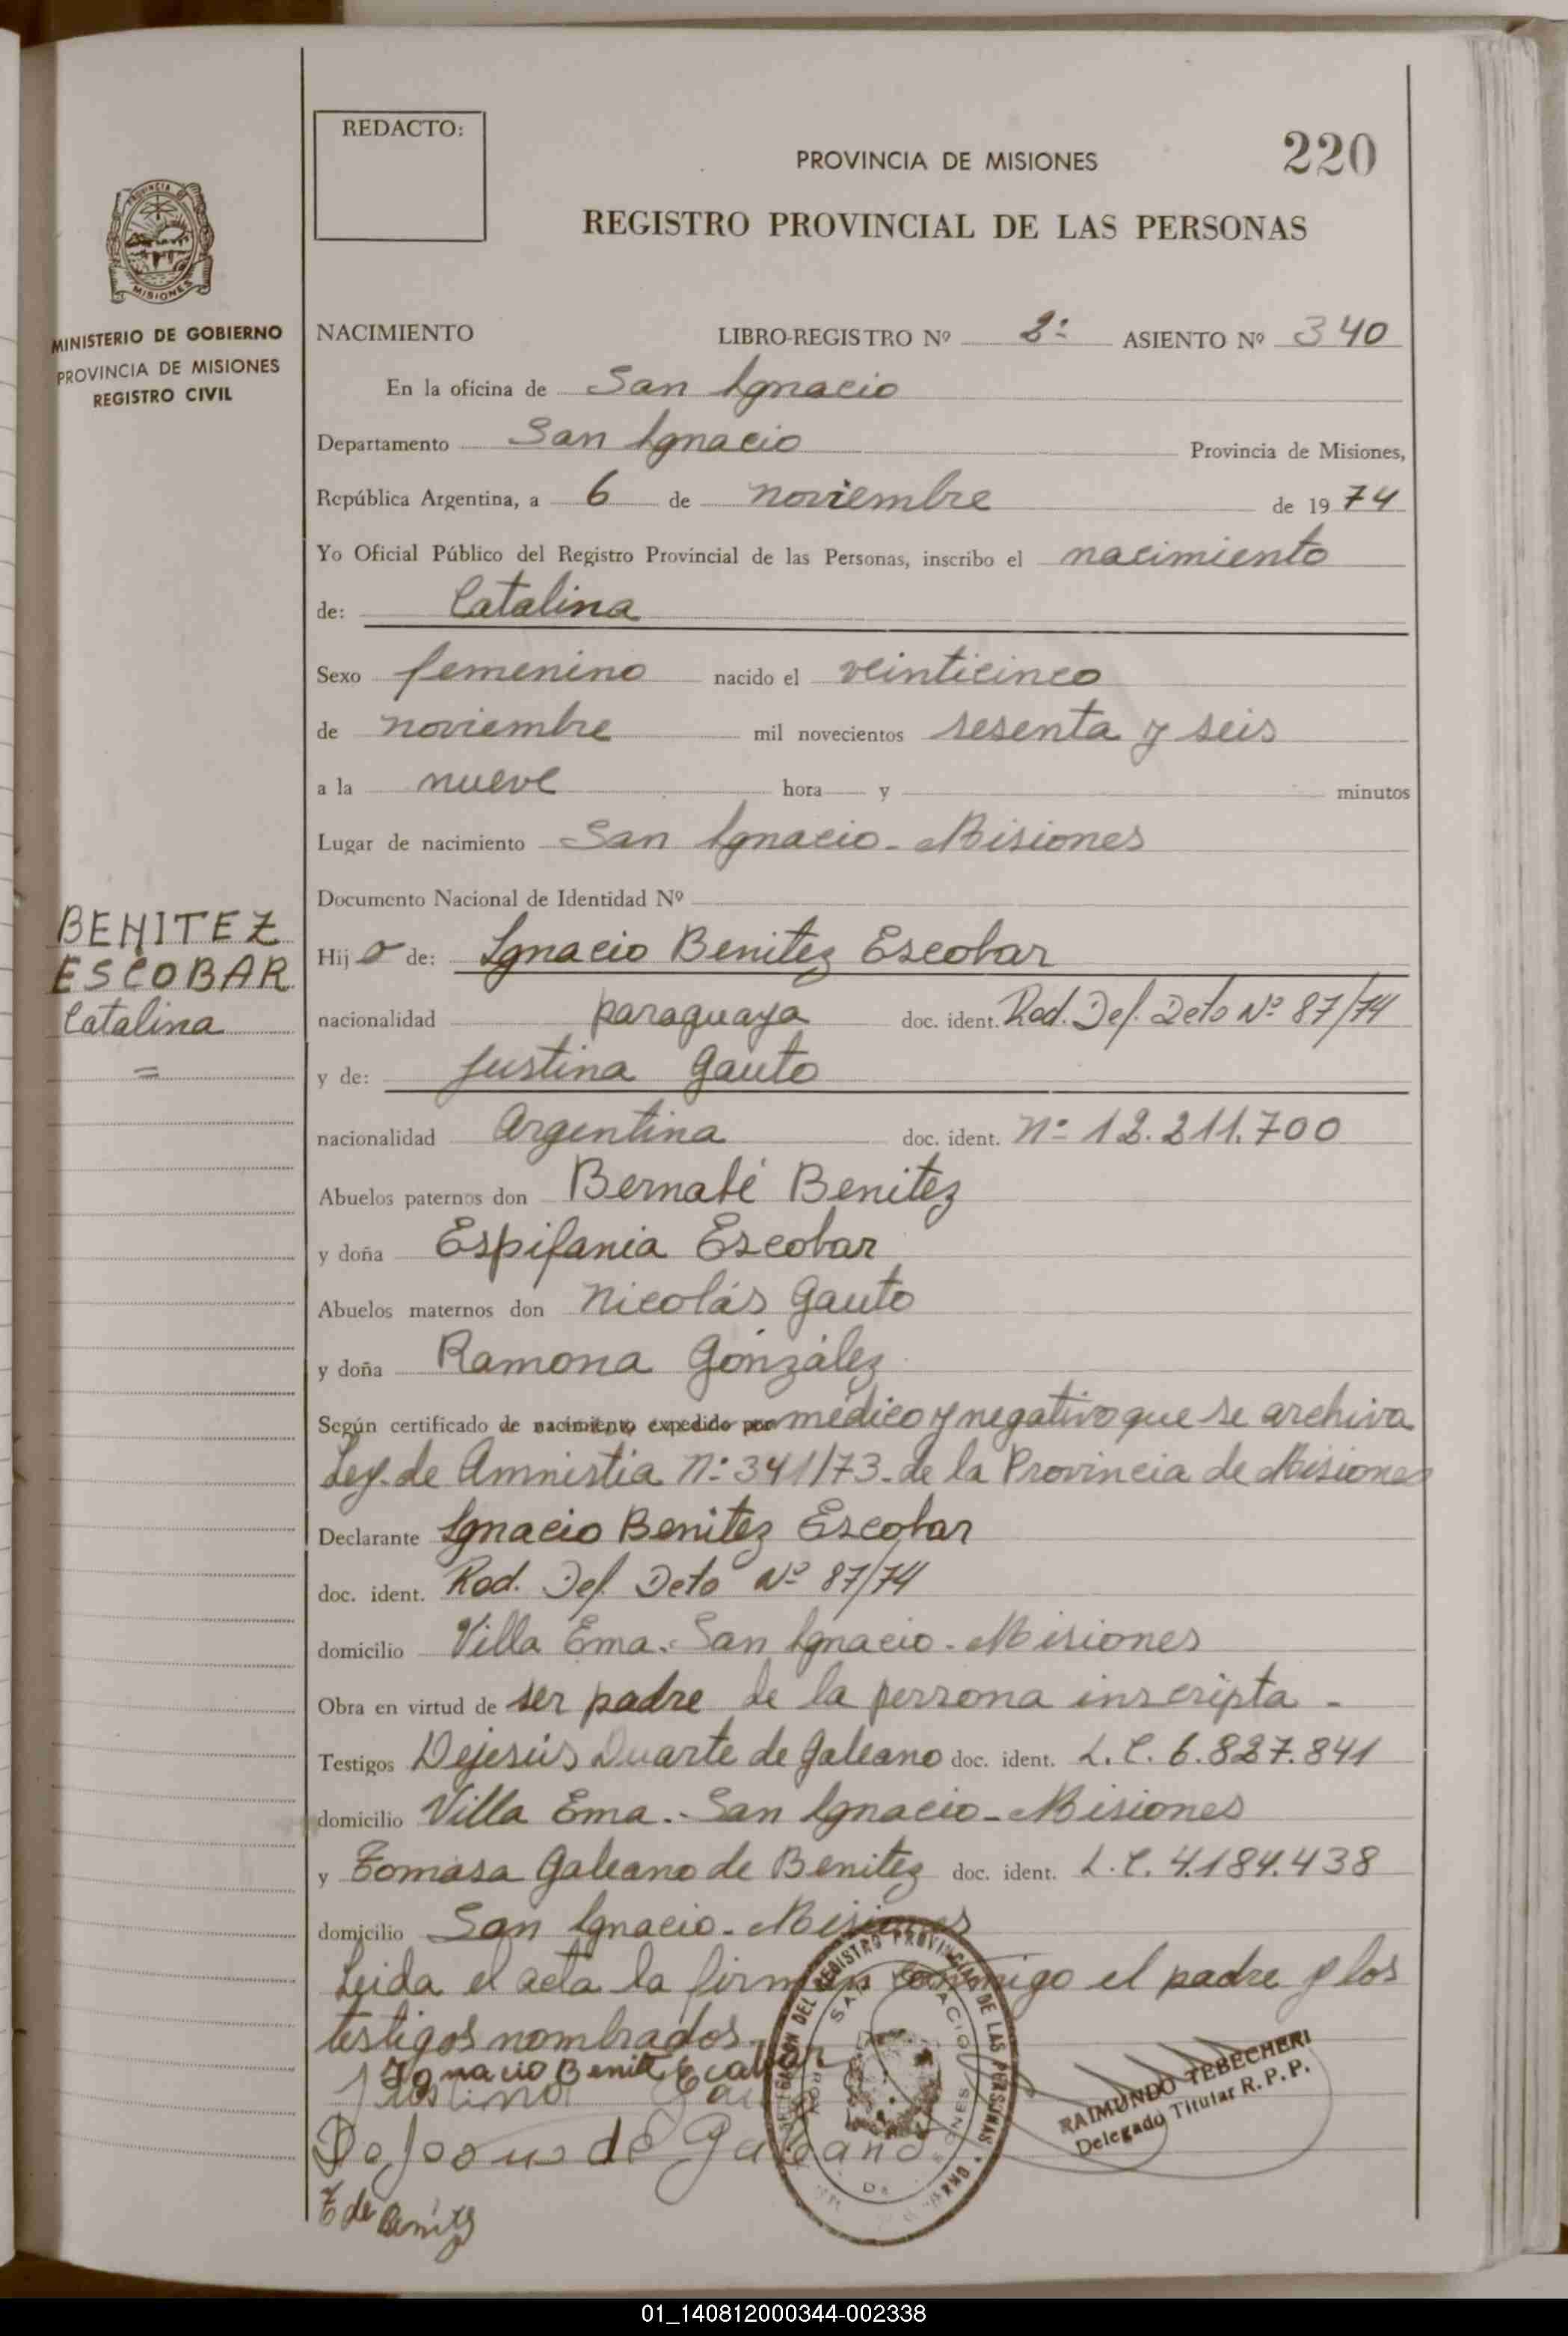 REDACTO:
PROVINCIA DE MISIONES
220
REGISTRO PROVINCIAL DE LAS PERSONAS
PROVINCIA
MISIONES
MINISTERIO DE GOBIERNO
PROVINCIA DE MISIONES
REGISTRO CIVIL
NACIMIENTO LIBRO-REGISTRO Nº 2º ASIENTO Nº 340
En la oficina de San Ignacio
Departamento San Ignacio Provincia de Misiones,
República Argentina, a 6 de noviembre de 1974
Yo Oficial Público del Registro Provincial de las Personas, inscribo el nacimiento
de: Catalina
Sexo femenino nacido el veinticinco
de noviembre mil novecientos sesenta y seis
a la nueve hora y minutos
Lugar de nacimiento San Ignacio - Misiones
Documento Nacional de Identidad Nº
BENITEZ
ESCOBAR
Catalina
=
Hij a de: Ignacio Benitez Escobar
nacionalidad paraguaya doc. ident. Rad. Def. Deto Nº 87/74
y de: Justina Gauto
nacionalidad Argentina doc. ident. nº 12.211.700
Abuelos paternos don Bernabé Benitez
y doña Espifania Escobar
Abuelos maternos don Nicolás Gauto
y doña Ramona González
Según certificado de nacimiento expedido por médico y negativo que se archiva
Ley de Amnistia Nº 341/73 - de la Provincia de Misiones
Declarante Ignacio Benitez Escobar
doc. ident. Rad. Def. Deto Nº 87/74
domicilio Villa Ema. - San Ignacio - Misiones
Obra en virtud de ser padre de la persona inscripta -
Testigos Dejesús Duarte de Galeano doc. ident. L.C. 6.827.841
domicilio Villa Ema. - San Ignacio - Misiones
y Tomasa Galeano de Benitez doc. ident. L.C. 4.184.438
domicilio San Ignacio - Misiones
Leida el acta la firman conmigo el padre y los
testigos nombrados -
Ignacio Benite Ecobar
Justina
de Galeano
T de Benitez
DELEGACION DEL REGISTRO PROVINCIAL DE LAS PERSONAS
SAN IGNACIO
RAIMUNDO TEBECHERI
Delegado Titular R. P. P.
01_140812000344-002338